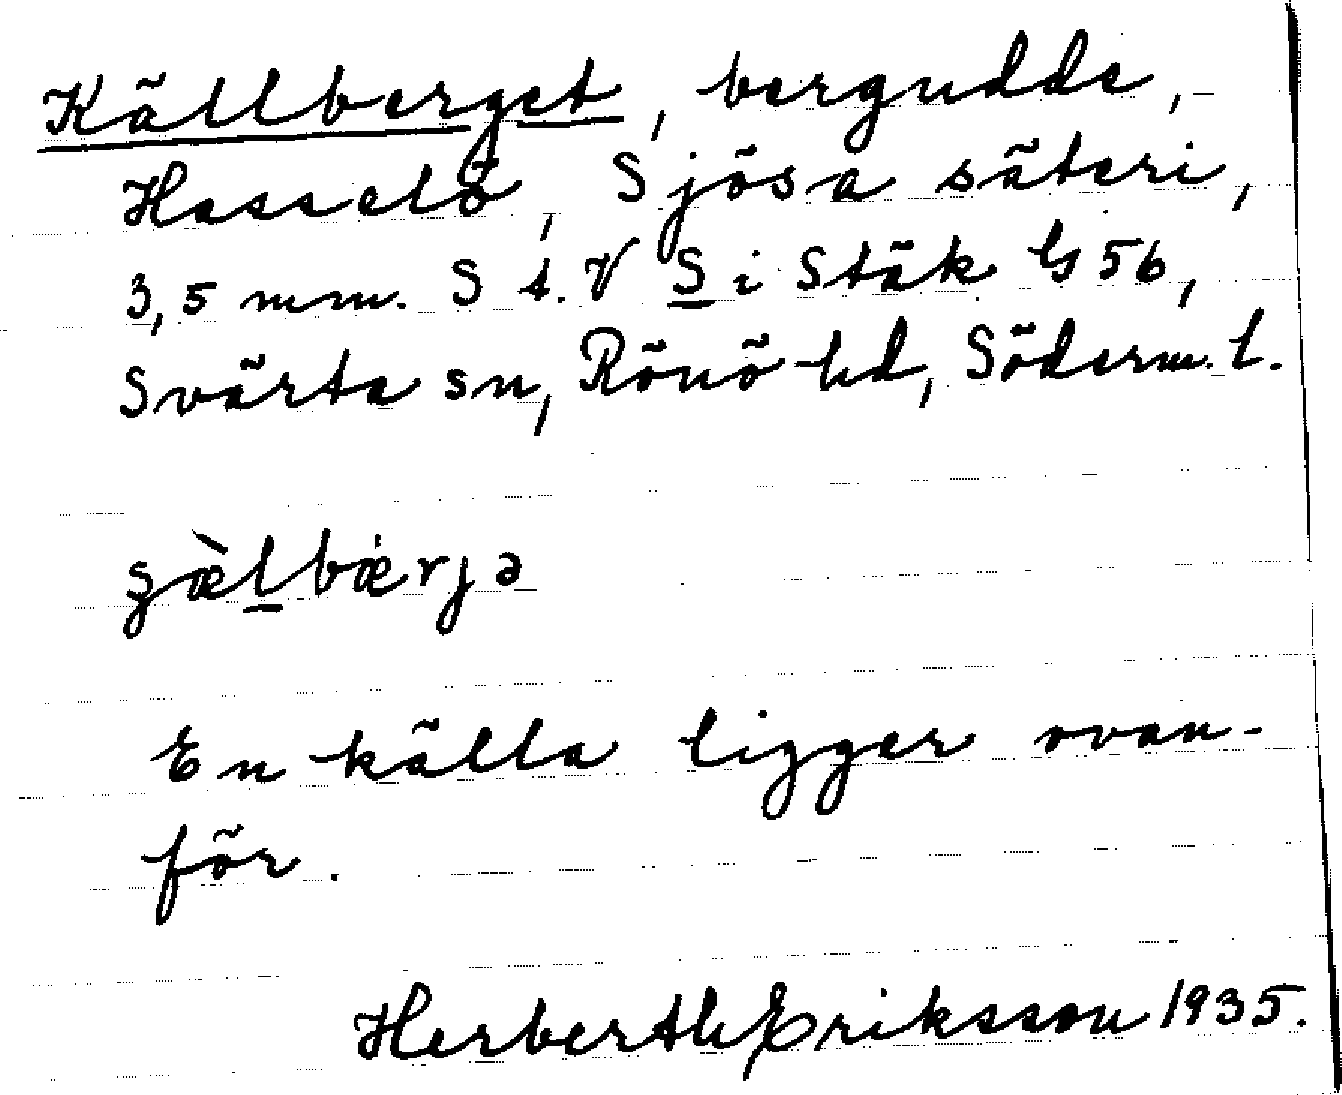 Källberget, bergudde,
Hasselö, Sjösa säteri,
3,5 mm. S t. V S i Stäk G 56,
Svärta sn, Rönö hd, Söderm. l.
ʂæ̀lbæ̇rjə
En källa ligger ovan-
för.
Herberth Eriksson 1935.